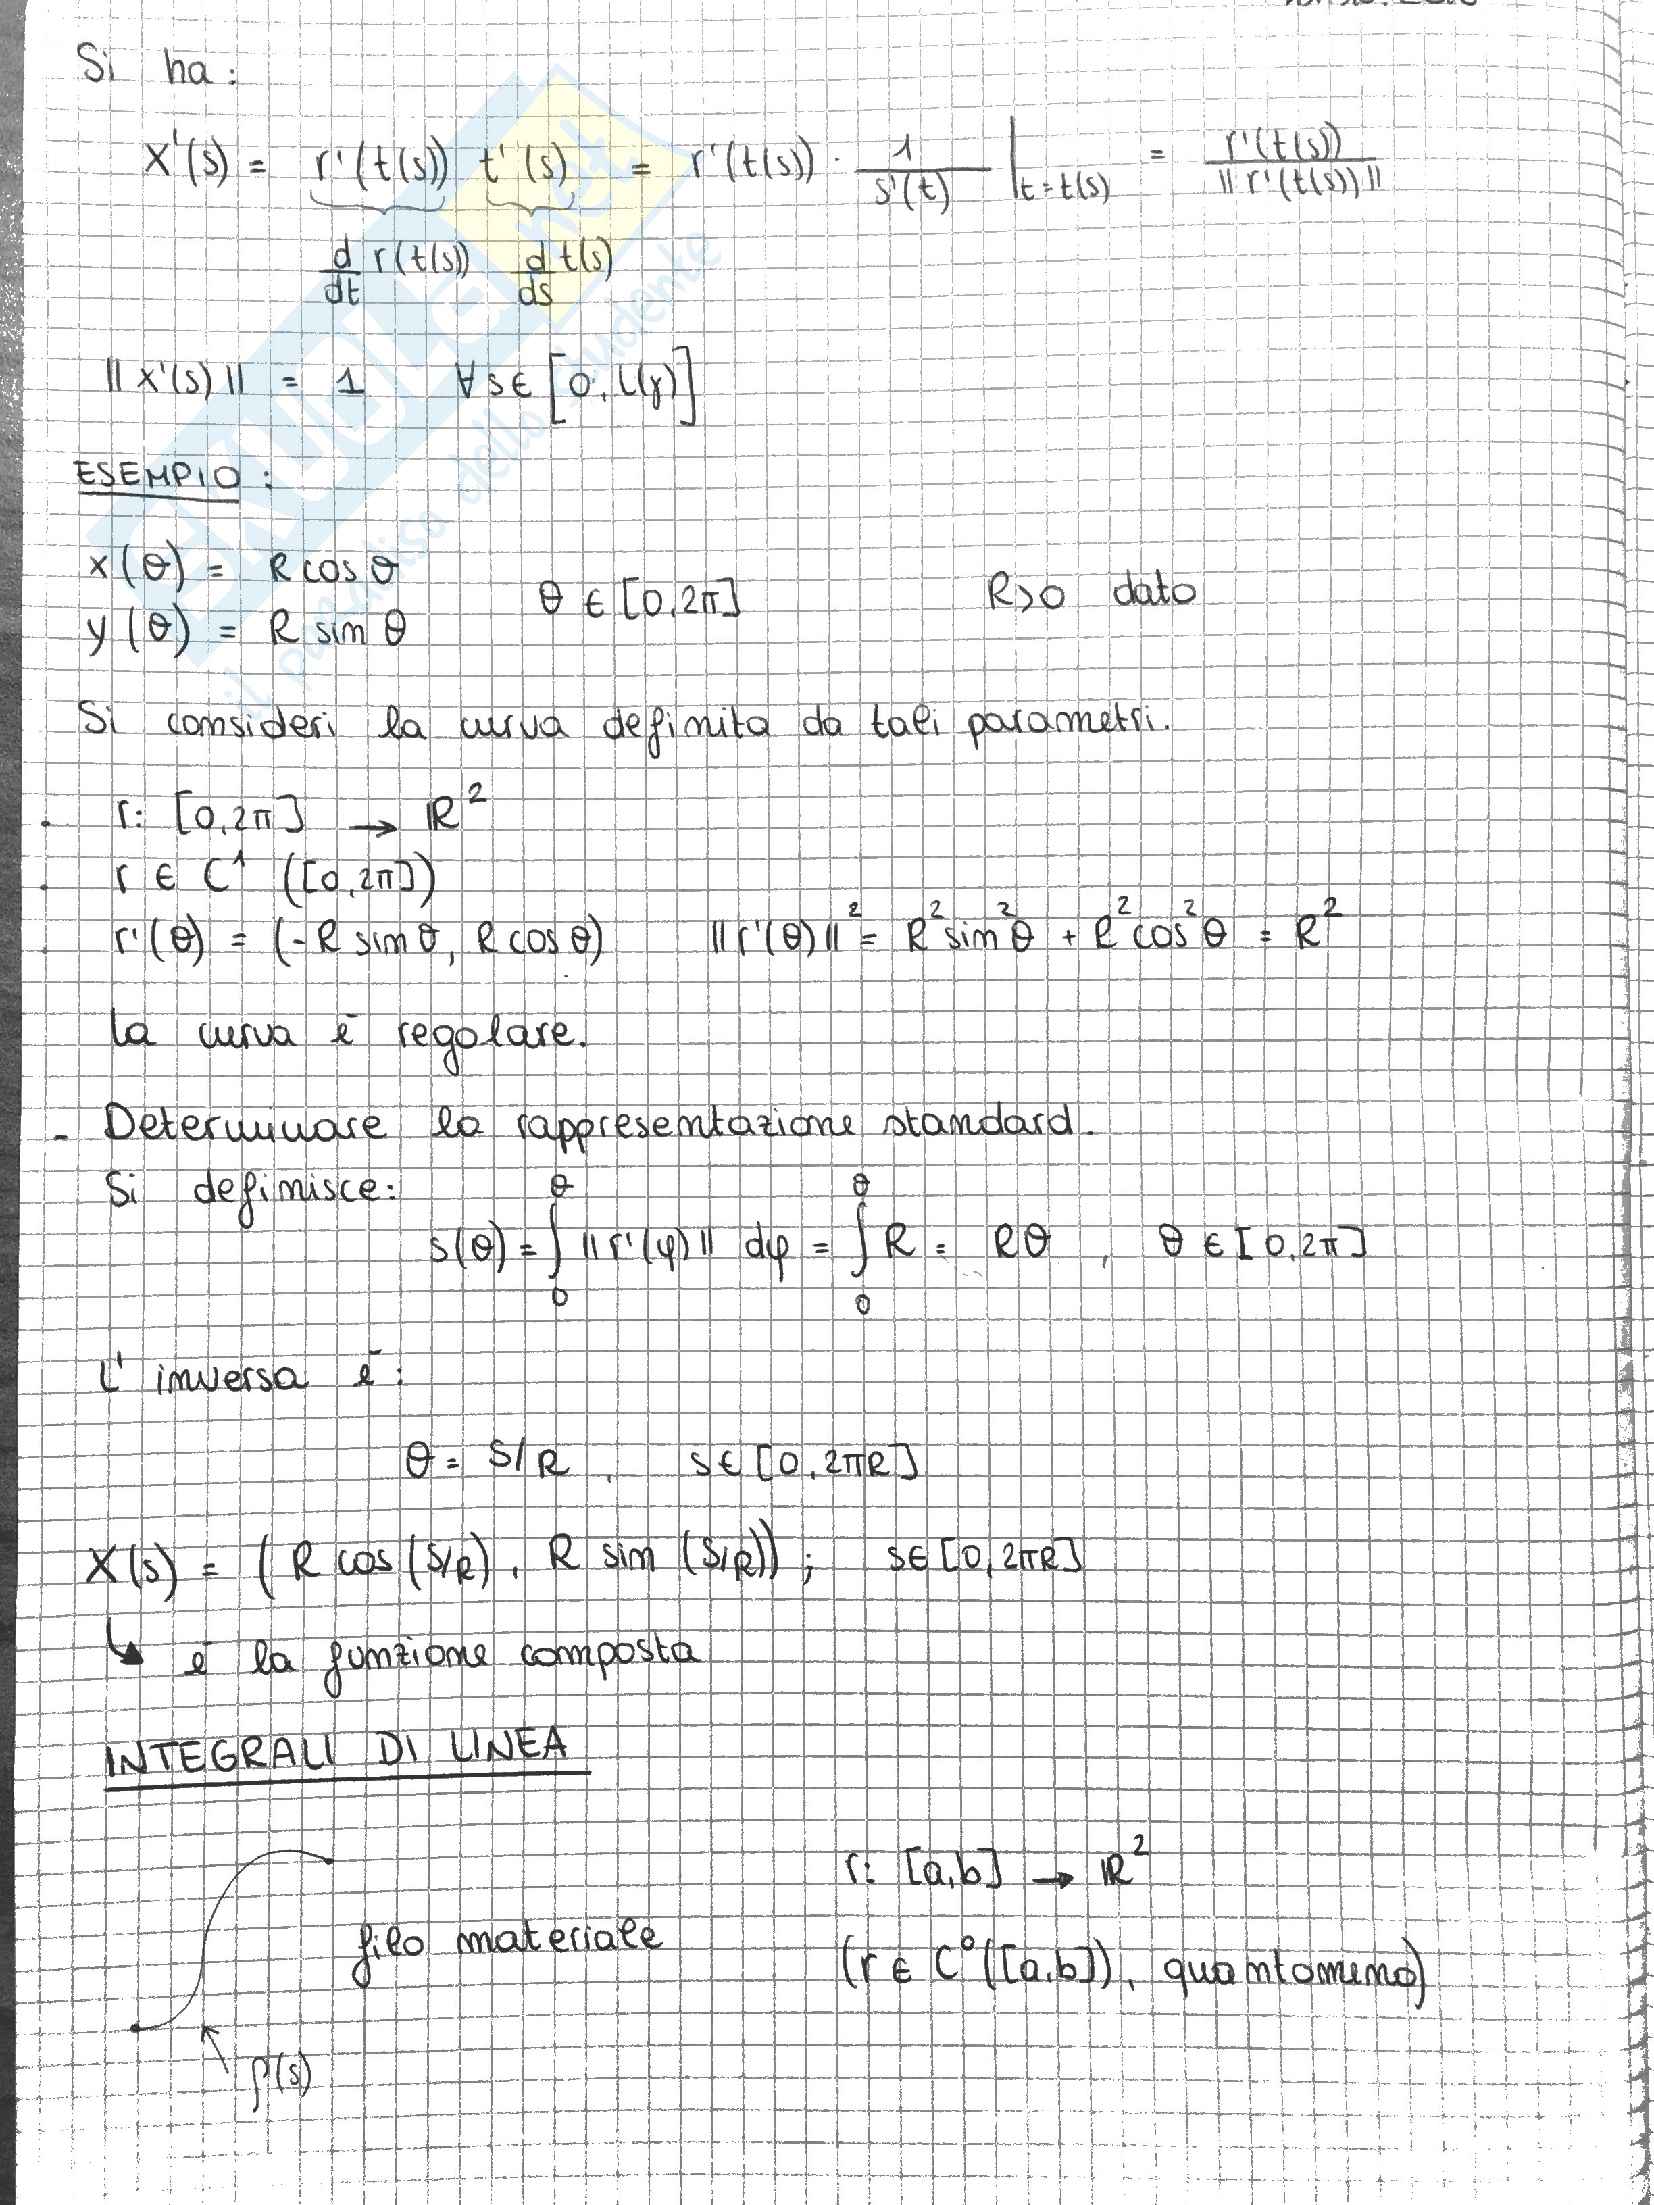 Si ha:
X'(s) = r'(t(s)) t'(s) = r'(t(s)) · 1/s'(t) |t=t(s) = r'(t(s)) / ‖r'(t(s))‖
d/dt r(t(s)) d/ds t(s)
‖X'(s)‖ = 1 ∀ s ∈ [0, L(γ)]
ESEMPIO:
x(θ) = R cos θ
θ ∈ [0, 2π] R>0 dato
y(θ) = R sin θ
Si consideri la curva definita da tali parametri.
· r: [0, 2π] → ℝ²
· r ∈ C¹ ([0, 2π])
r'(θ) = (-R sin θ, R cos θ) ‖r'(θ)‖² = R² sin² θ + R² cos² θ = R²
la curva è regolare.
- Determinare la rappresentazione standard.
Si definisce:
s(θ) = ∫₀^θ ‖r'(φ)‖ dφ = ∫₀^θ R = Rθ , θ ∈ [0, 2π]
L'inversa è:
θ = s/R , s ∈ [0, 2πR]
X(s) = (R cos (s/R), R sin (s/R)); s ∈ [0, 2πR]
↳ è la funzione composta
INTEGRALI DI LINEA
r: [a, b] → ℝ²
filo materiale
(r ∈ C⁰([a, b]), quantomeno)
ρ(s)
SKUOLA.net
il paradiso dello studente